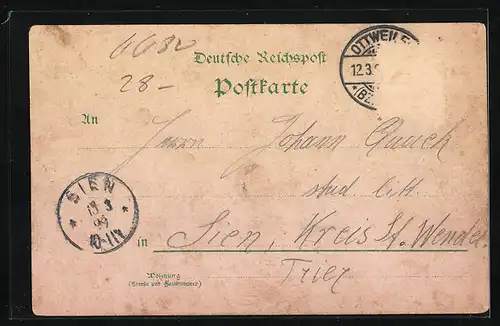 6680
28-
Deutsche Reichspost
Postkarte
OTTWEILE
12.3.
An
Herrn Johann
SIEN
13 3
99
10-11V
stud
in Sien, Kreis St. Wendel
Trier
Wohnung
(Strasse und Hausnummer)